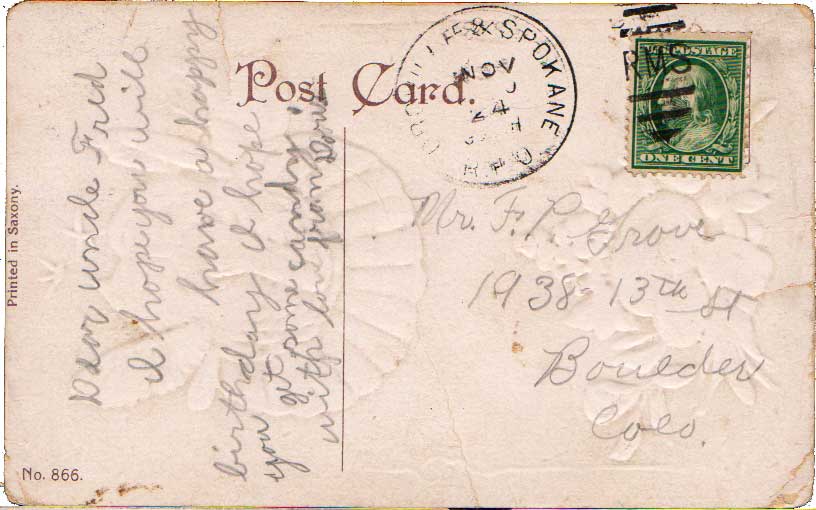 Post Card.
Printed in Saxony.
No. 866.
& SPOKANE
NOV
24
R.P.O.
RMS
U.S. POSTAGE
ONE CENT
Dear uncle Fred
I hope you will
have a happy
birthday I hope
you get some candy
with love from Doris
Mr. F. P. Grove
1938-13th St
Boulder
Colo.